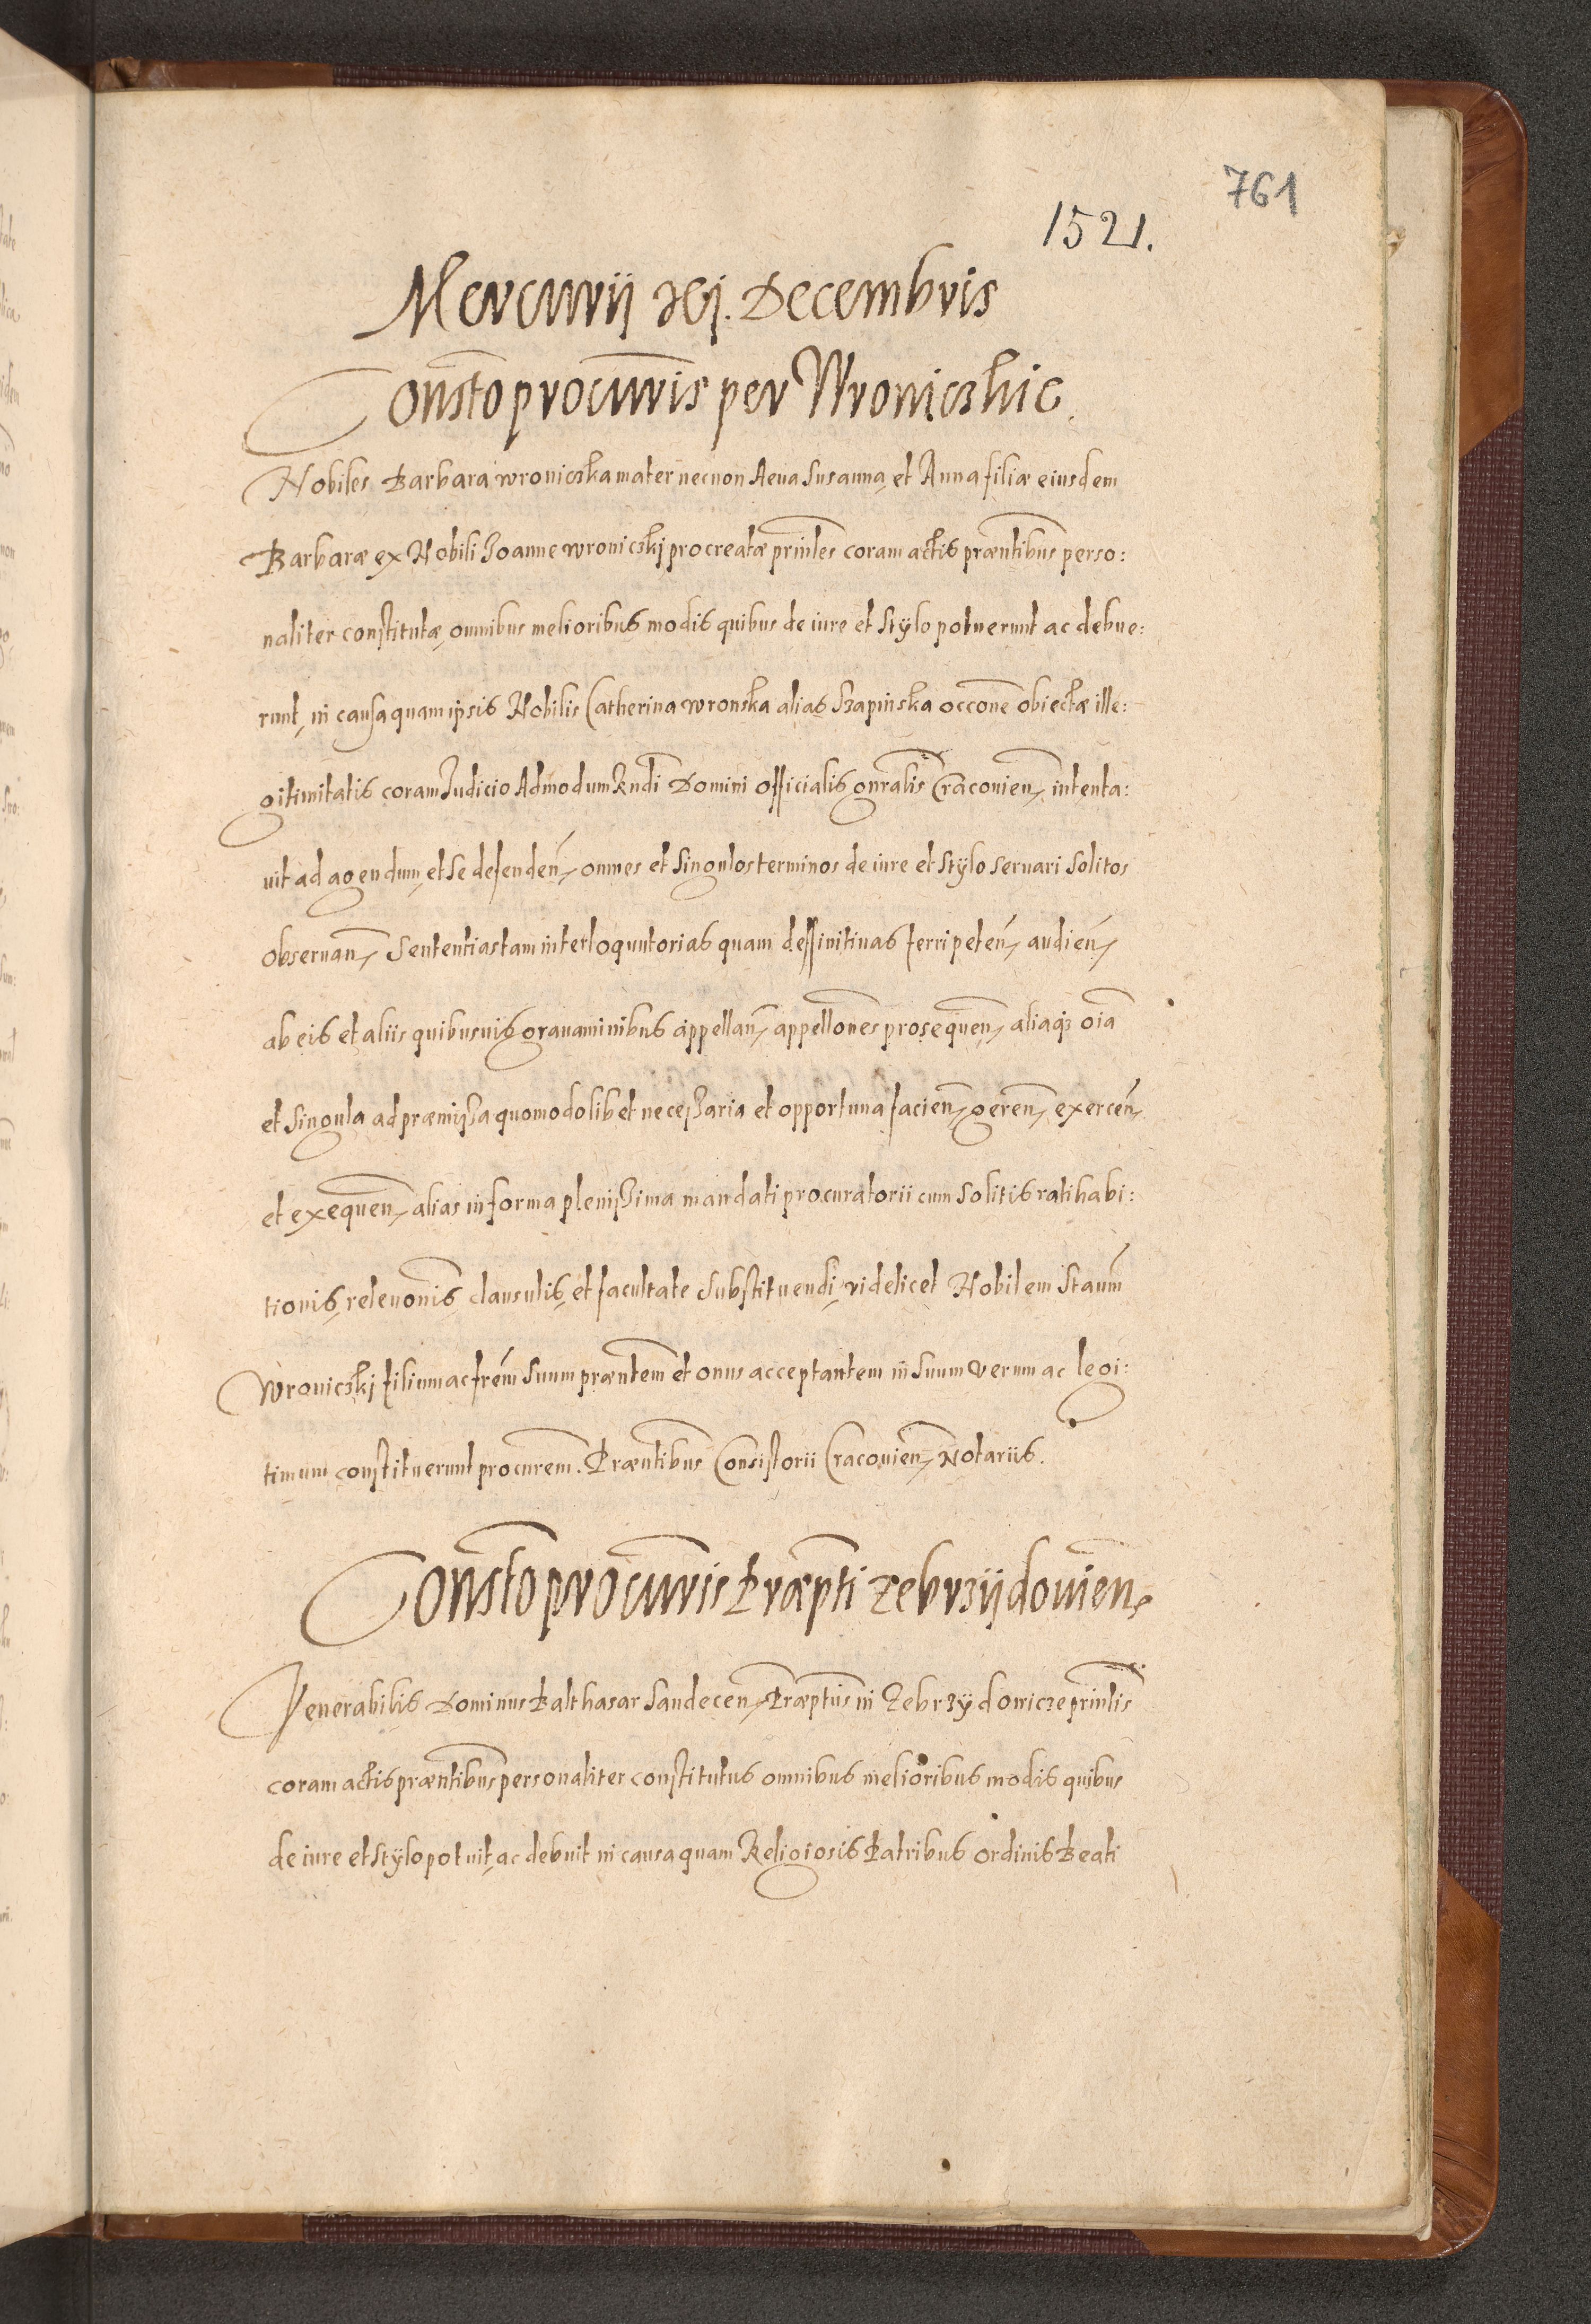 761
1521.
Mercurij xxj. Decembris
Constō procuris per Wroniczkic
Nobiles Barbara wroniczka mater necnon Aeva Susanna, et Anna filiæ eiusdem
Barbaræ ex Nobili Joanne wroniczkj procreatæ prinles coram actis præntibus perso:
naliter constitutæ, omnibus melioribus modis quibus de iure et Stÿlo potuerunt ac debue:
runt, in causa quam ipsis Nobilis Catherina wronska alias Szapinska occone obiectæ ille:
gitimitatis coram Judicio Admodum Rndi Domini officialis gnralis Cracouien, intenta:
uit ad agendum, et Se defenden, omnes et Singulos terminos de iure et Stÿlo seruari Solitos
obseruan, Sententias tam interloquutorias quam deffinitiuas ferri peten, audien,
ab eis et aliis quibusuis grauaminibus appellan, appellones prosequen, aliaqz oia
et Singula ad præmißa quomodolibet neceßaria et opportuna facien, geren, exercen,
et exequen, alias in forma plenißima mandati procuratorii cum Solitis ratihabi:
tionis, releuonis clausulis, et facultate Substituendi, videlicet Nobilem Staum
Wroniczkj filium ac frem Suum præntem et onus acceptantem in Suum verum ac legi:
timum constituerunt procurem. Præntibus Consistorii Cracouien, Notariis.
Constō procuris Præpti Zebrzÿdouien,
Venerabilis Dominus Balthasar Sandecen, Præptus in Zebrzÿdowicze prinlis
coram actis præntibus personaliter constitutus omnibus melioribus modis quibus
de iure et Stÿlo potuit, ac debuit in causa quam Religiosis Patribus ordinis Beati